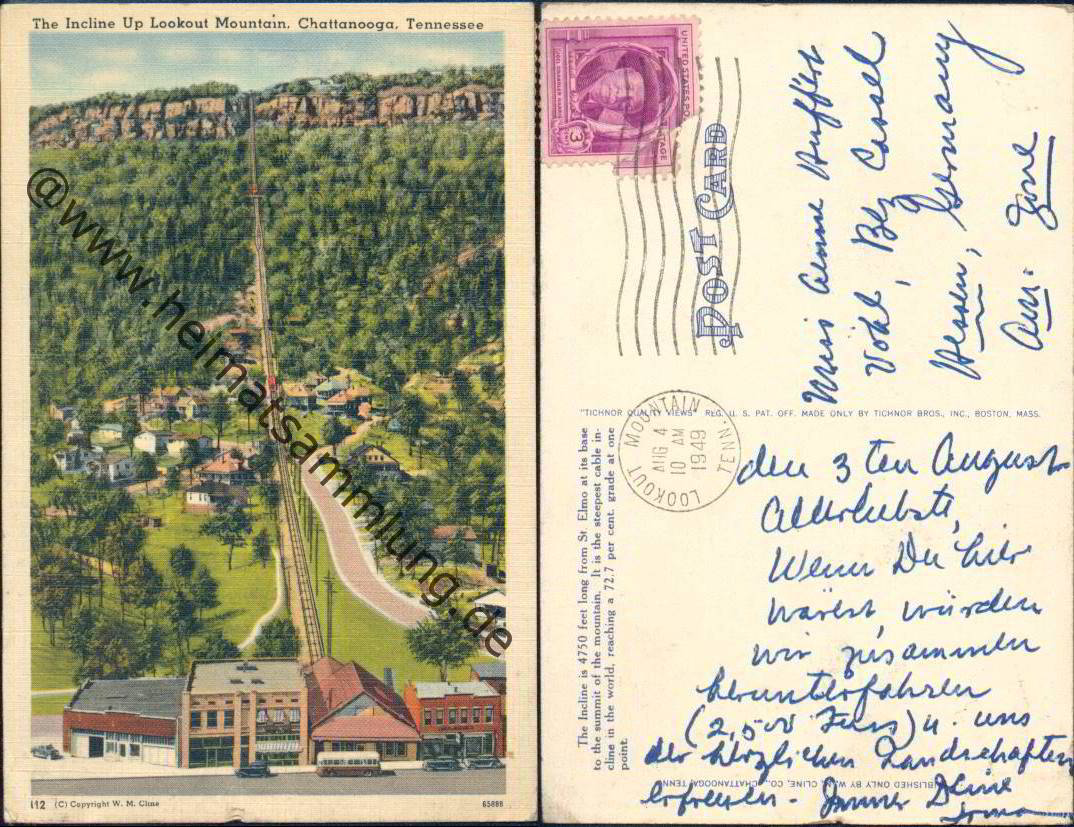 The Incline Up Lookout Mountain, Chattanooga, Tennessee
@www.heimatsammlung.de
112 (C) Copyright W. M. Cline
65888
UNITED STATES PO
TAGE
3
POST CARD
Miss Anne
Bez Cassel
Hessen, Germany
Am. Zone
"TICHNOR QUALITY VIEWS" REG. U. S. PAT. OFF. MADE ONLY BY TICHNOR BROS., INC., BOSTON, MASS.
LOOKOUT MOUNTAIN TENN.
AUG 4
10 AM
1949
The Incline is 4750 feet long from St. Elmo at its base
to the summit of the mountain. It is the steepest cable in-
cline in the world, reaching a 72.7 per cent. grade at one
point.
PUBLISHED ONLY BY W. M. CLINE, CO., CHATTANOOGA, TENN.
den 3 ten August
Allerliebste,
Wenn Du hier
wärst, würden
wir zusammen
herunterfahren
(2,500 Fuss) u. uns
der herzlichen Landschaften
erfreuen. Immer Deine
Irma